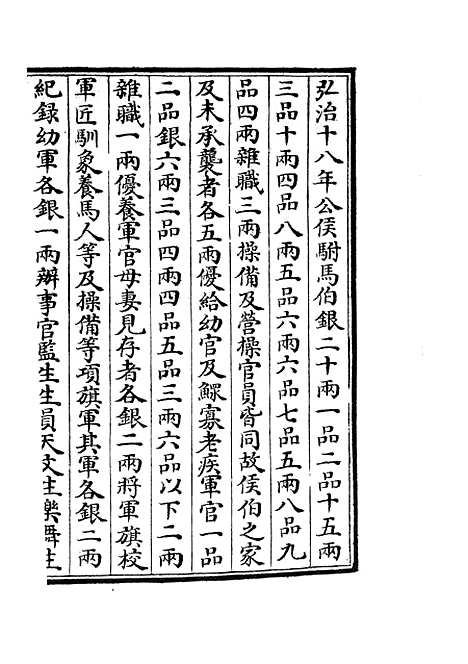 弘治十八年公侯駙馬伯銀二十兩一品二品十五兩
三品十兩四品八兩五品六兩六品七品五兩八品九
品四兩雜職三兩操備及營操官員皆同故侯伯之家
及未承襲者各五兩優給幼官及鰥寡老疾軍官一品
二品銀六兩三品四兩四品五品三兩六品以下二兩
雜職一兩優養軍官母妻見存者各銀二兩將軍旗校
軍匠馴象養馬人等及操備等項旗軍其軍各銀二兩
紀録幼軍各銀一兩辦事官監生生員天文生樂舞生